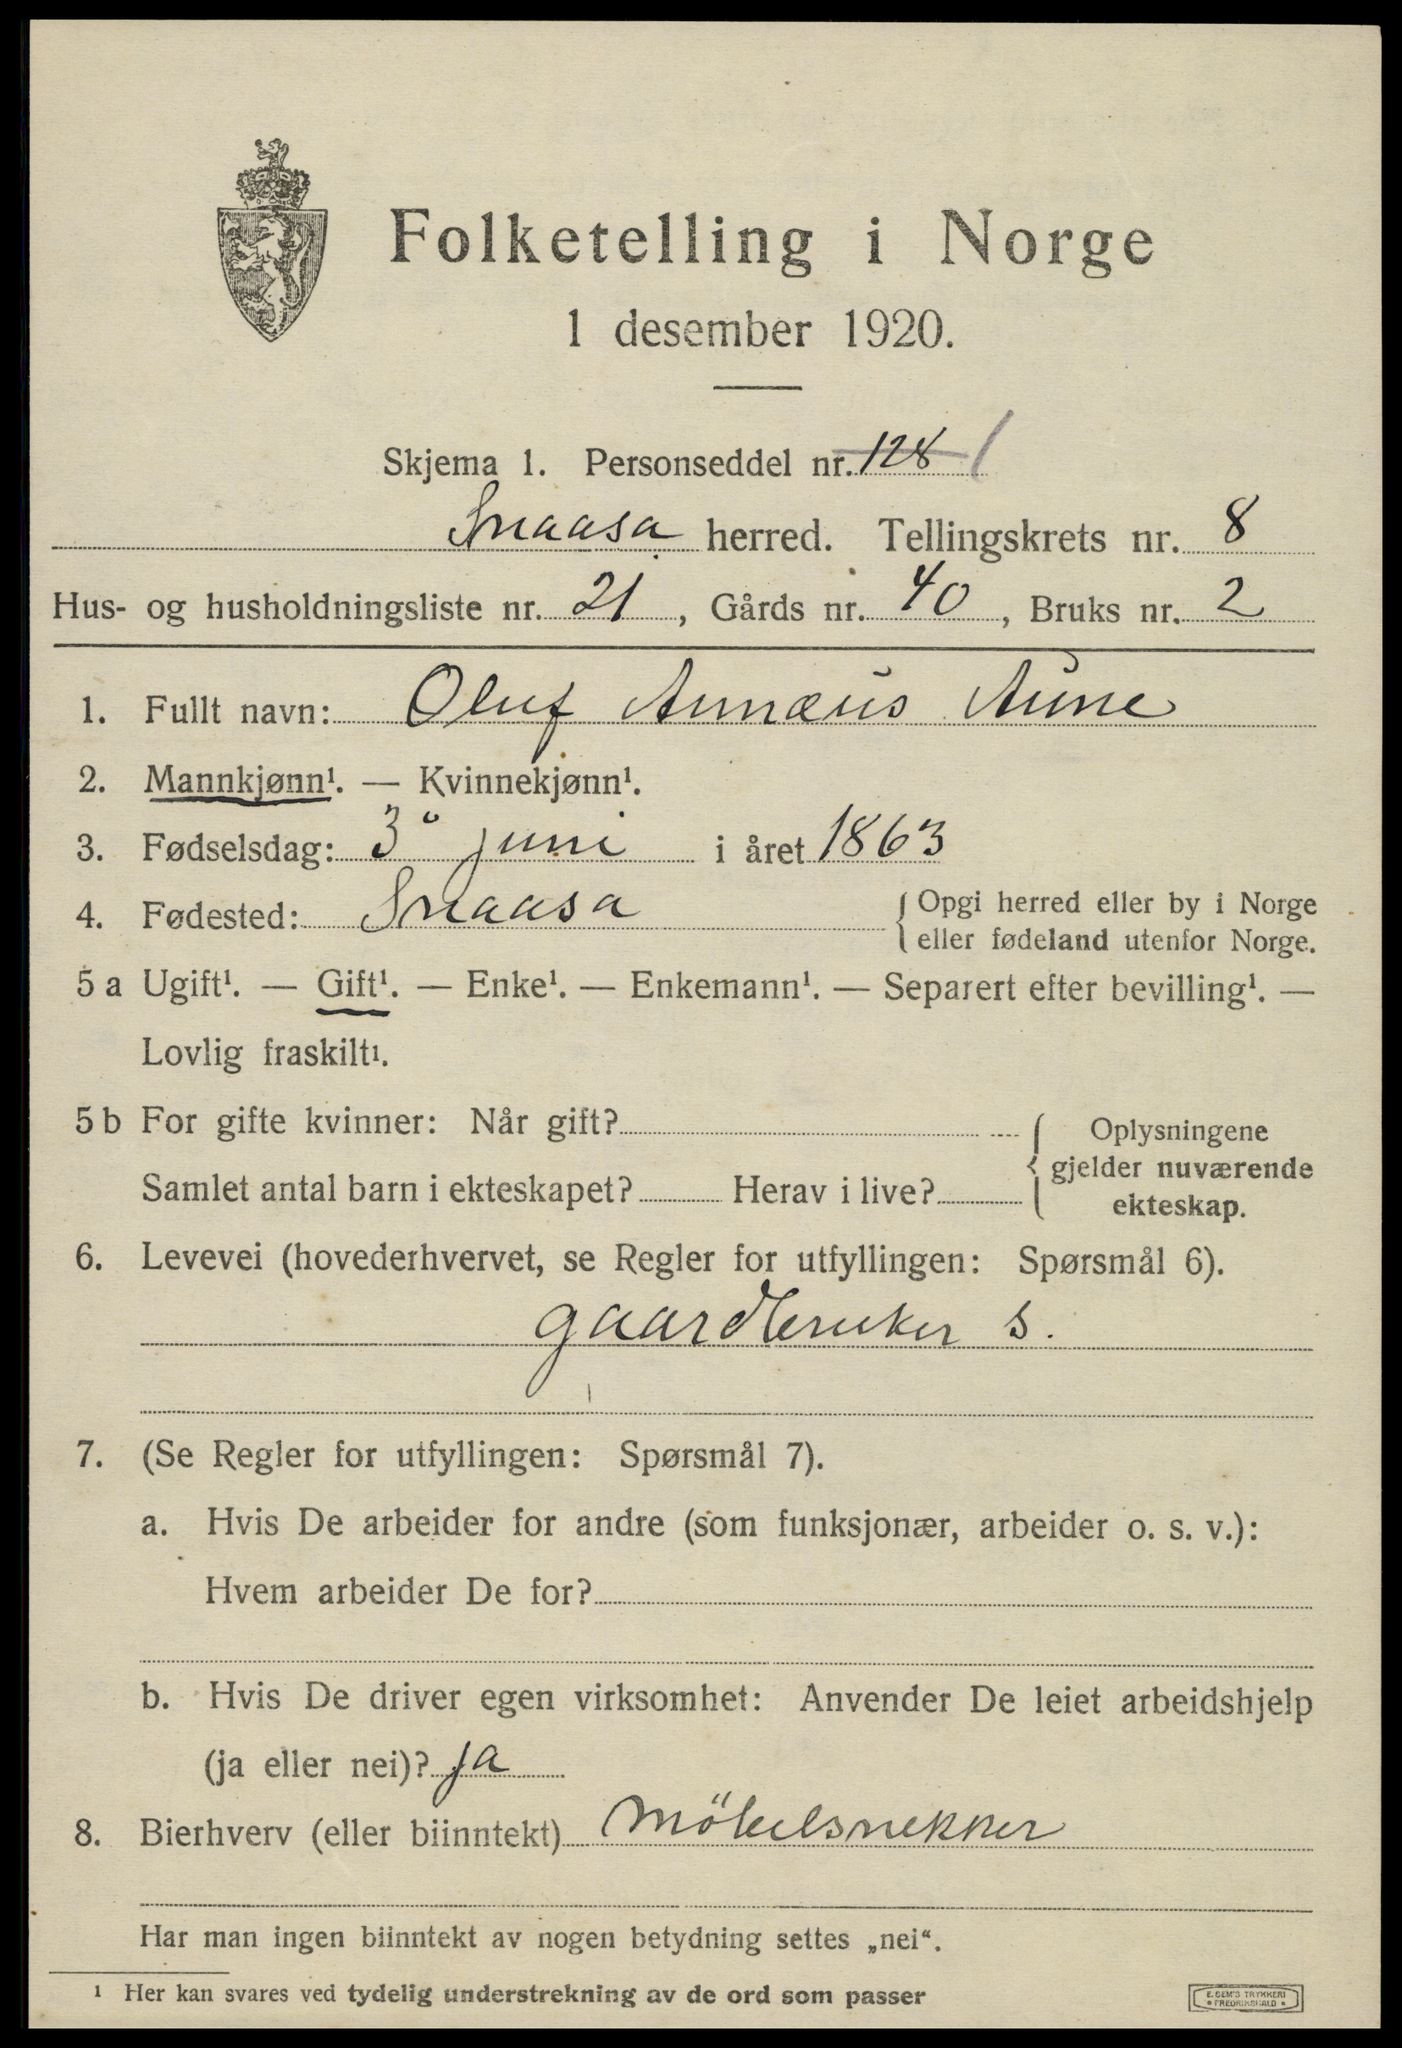 Folketelling i Norge
1 desember 1920.
Skjema 1. Personseddel nr. 128 1
Snaasa herred. Tellingskrets nr. 8
Hus- og husholdningsliste nr. 21, Gårds nr. 40, Bruks nr. 2
1. Fullt navn: Oluf Annæus Aune
2. Mannkjønn¹. — Kvinnekjønn¹.
3. Fødselsdag: 3º juni i året 1863
4. Fødested: Snaasa { Opgi herred eller by i Norge
eller fødeland utenfor Norge.
5 a Ugift¹. — Gift¹. — Enke¹. — Enkemann¹. — Separert efter bevilling¹. —
Lovlig fraskilt¹.
5 b For gifte kvinner: Når gift? { Oplysningene
gjelder nuværende
Samlet antal barn i ekteskapet? Herav i live? ekteskap.
6. Levevei (hovederhvervet, se Regler for utfyllingen: Spørsmål 6).
gaardbruker s.
7. (Se Regler for utfyllingen: Spørsmål 7).
a. Hvis De arbeider for andre (som funksjonær, arbeider o. s. v.):
Hvem arbeider De for?
b. Hvis De driver egen virksomhet: Anvender De leiet arbeidshjelp
(ja eller nei)? ja
8. Bierhverv (eller biinntekt) Möbelsnekker
Har man ingen biinntekt av nogen betydning settes „nei“.
¹ Her kan svares ved tydelig understrekning av de ord som passer
E. SEM'S TRYKKERI
• FREDRIKSHALD •